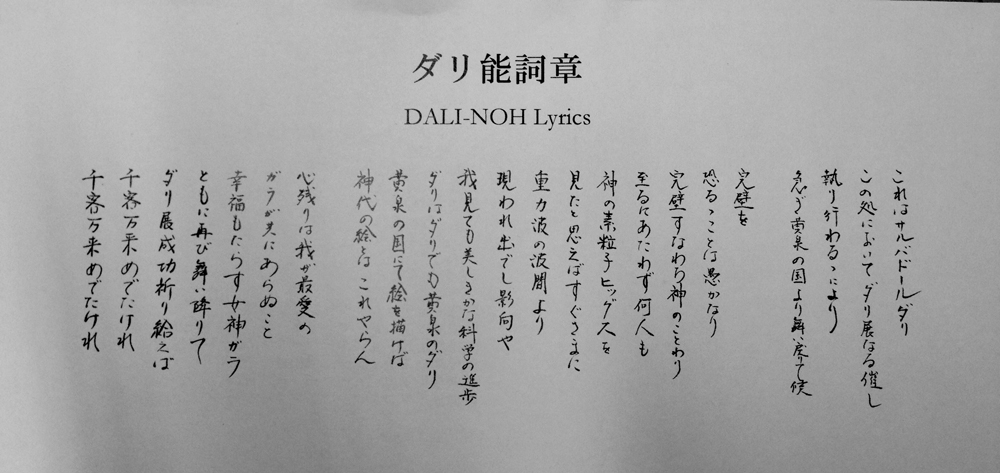 ダリ能詞章
DALI-NOH Lyrics
これはサルバドールダリ
この処においてダリ展なる催し
執り行わるゝにより
急ぎ黄泉の国より舞い戻りて候
完璧を
恐るゝことは愚かなり
完璧すなわち神のことわり
至るにあたわず何人も
神の素粒子ヒッグスを
見たと思えばすぐさまに
重力波の波間より
現われ出でし影向や
我見ても美しきかな科学の進歩
ダリはダリでも黄泉のダリ
黄泉の国にて絵を描けば
神代の絵とはこれやらん
心残りは我が最愛の
ガラが共にあらぬこと
幸福もたらす女神ガラ
ともに再び舞い降りて
ダリ展成功祈り給えば
千客万来めでたけれ
千客万来めでたけれ